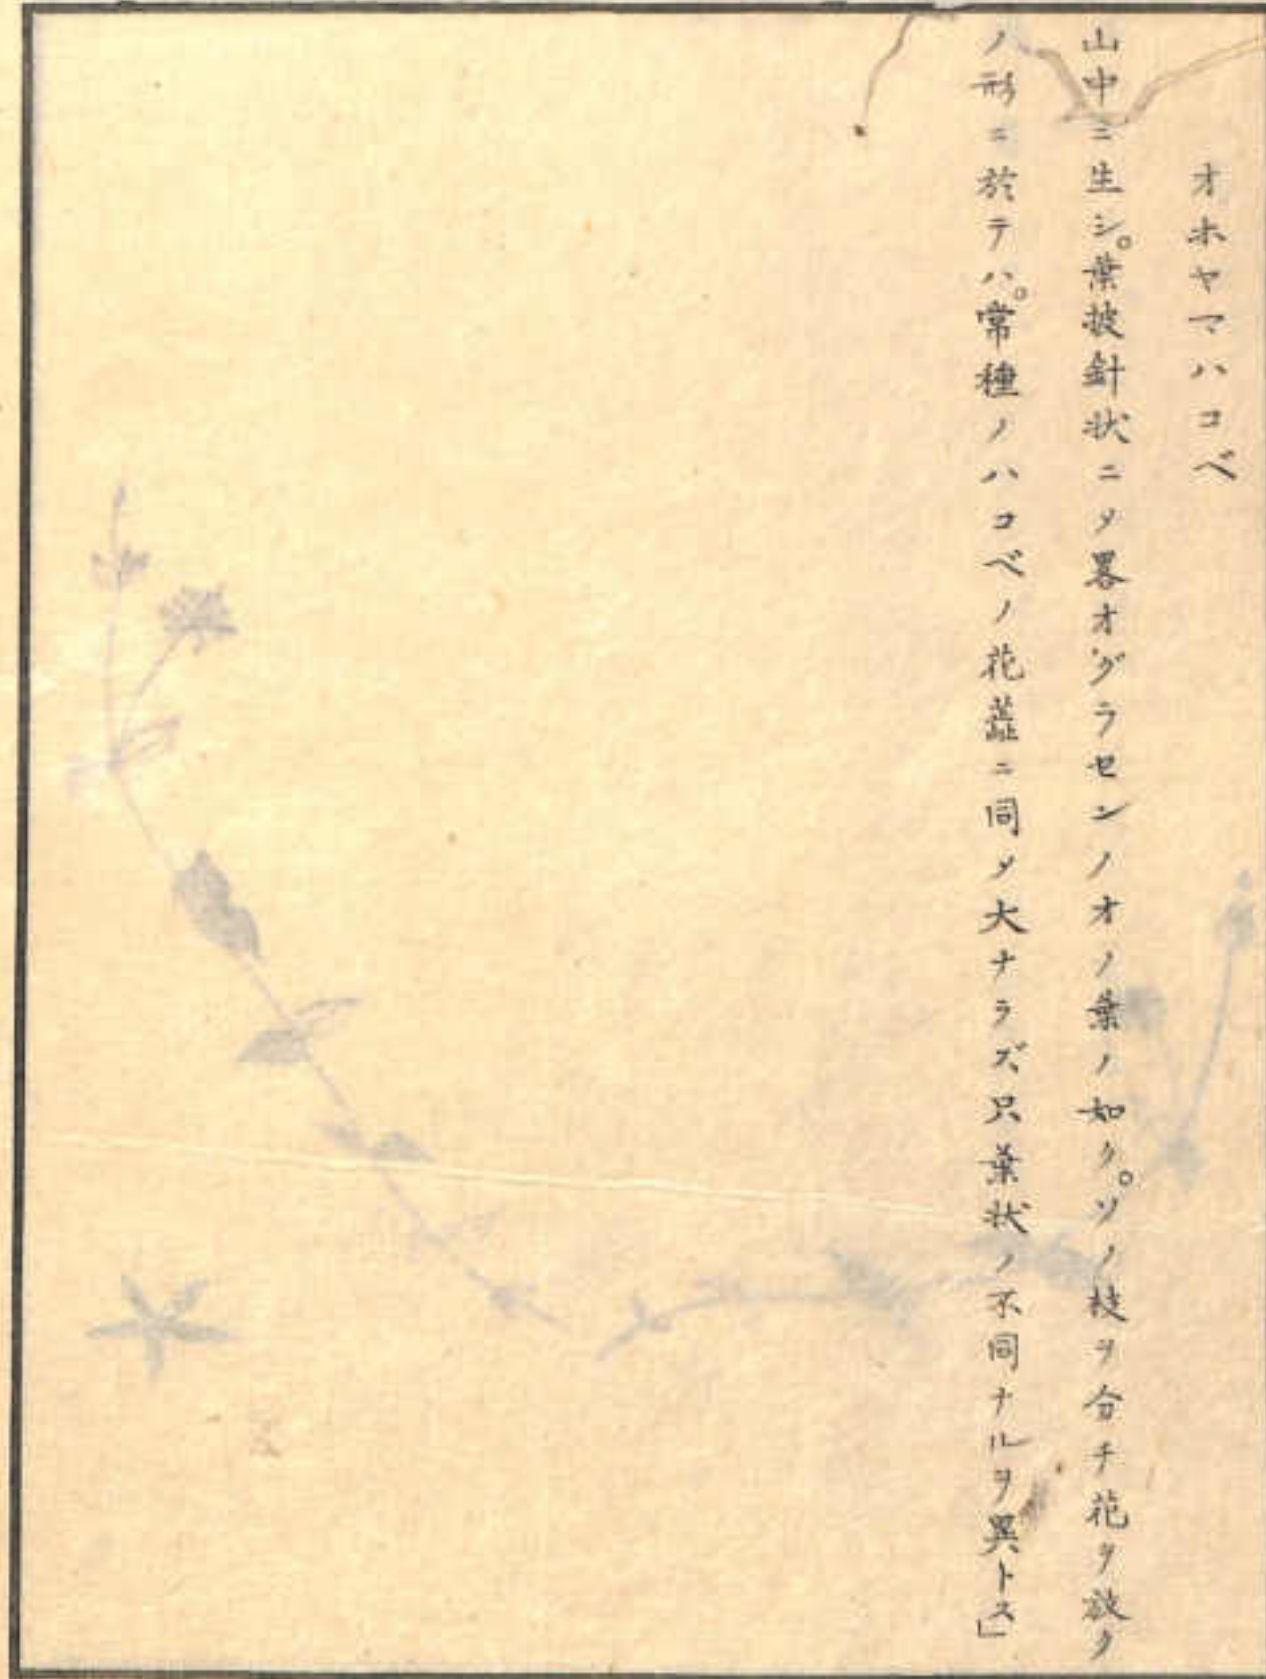 オホヤマハコベ
山中ニ生シ。葉披針状ニ〆畧オグラセンノオノ葉ノ如ク。ソノ枝ヲ分チ花ヲ放ク
ノ形ニ於テハ。常種ノハコベノ花蕋ニ同〆大ナラズ只葉状ノ不同ナルヲ異トス」